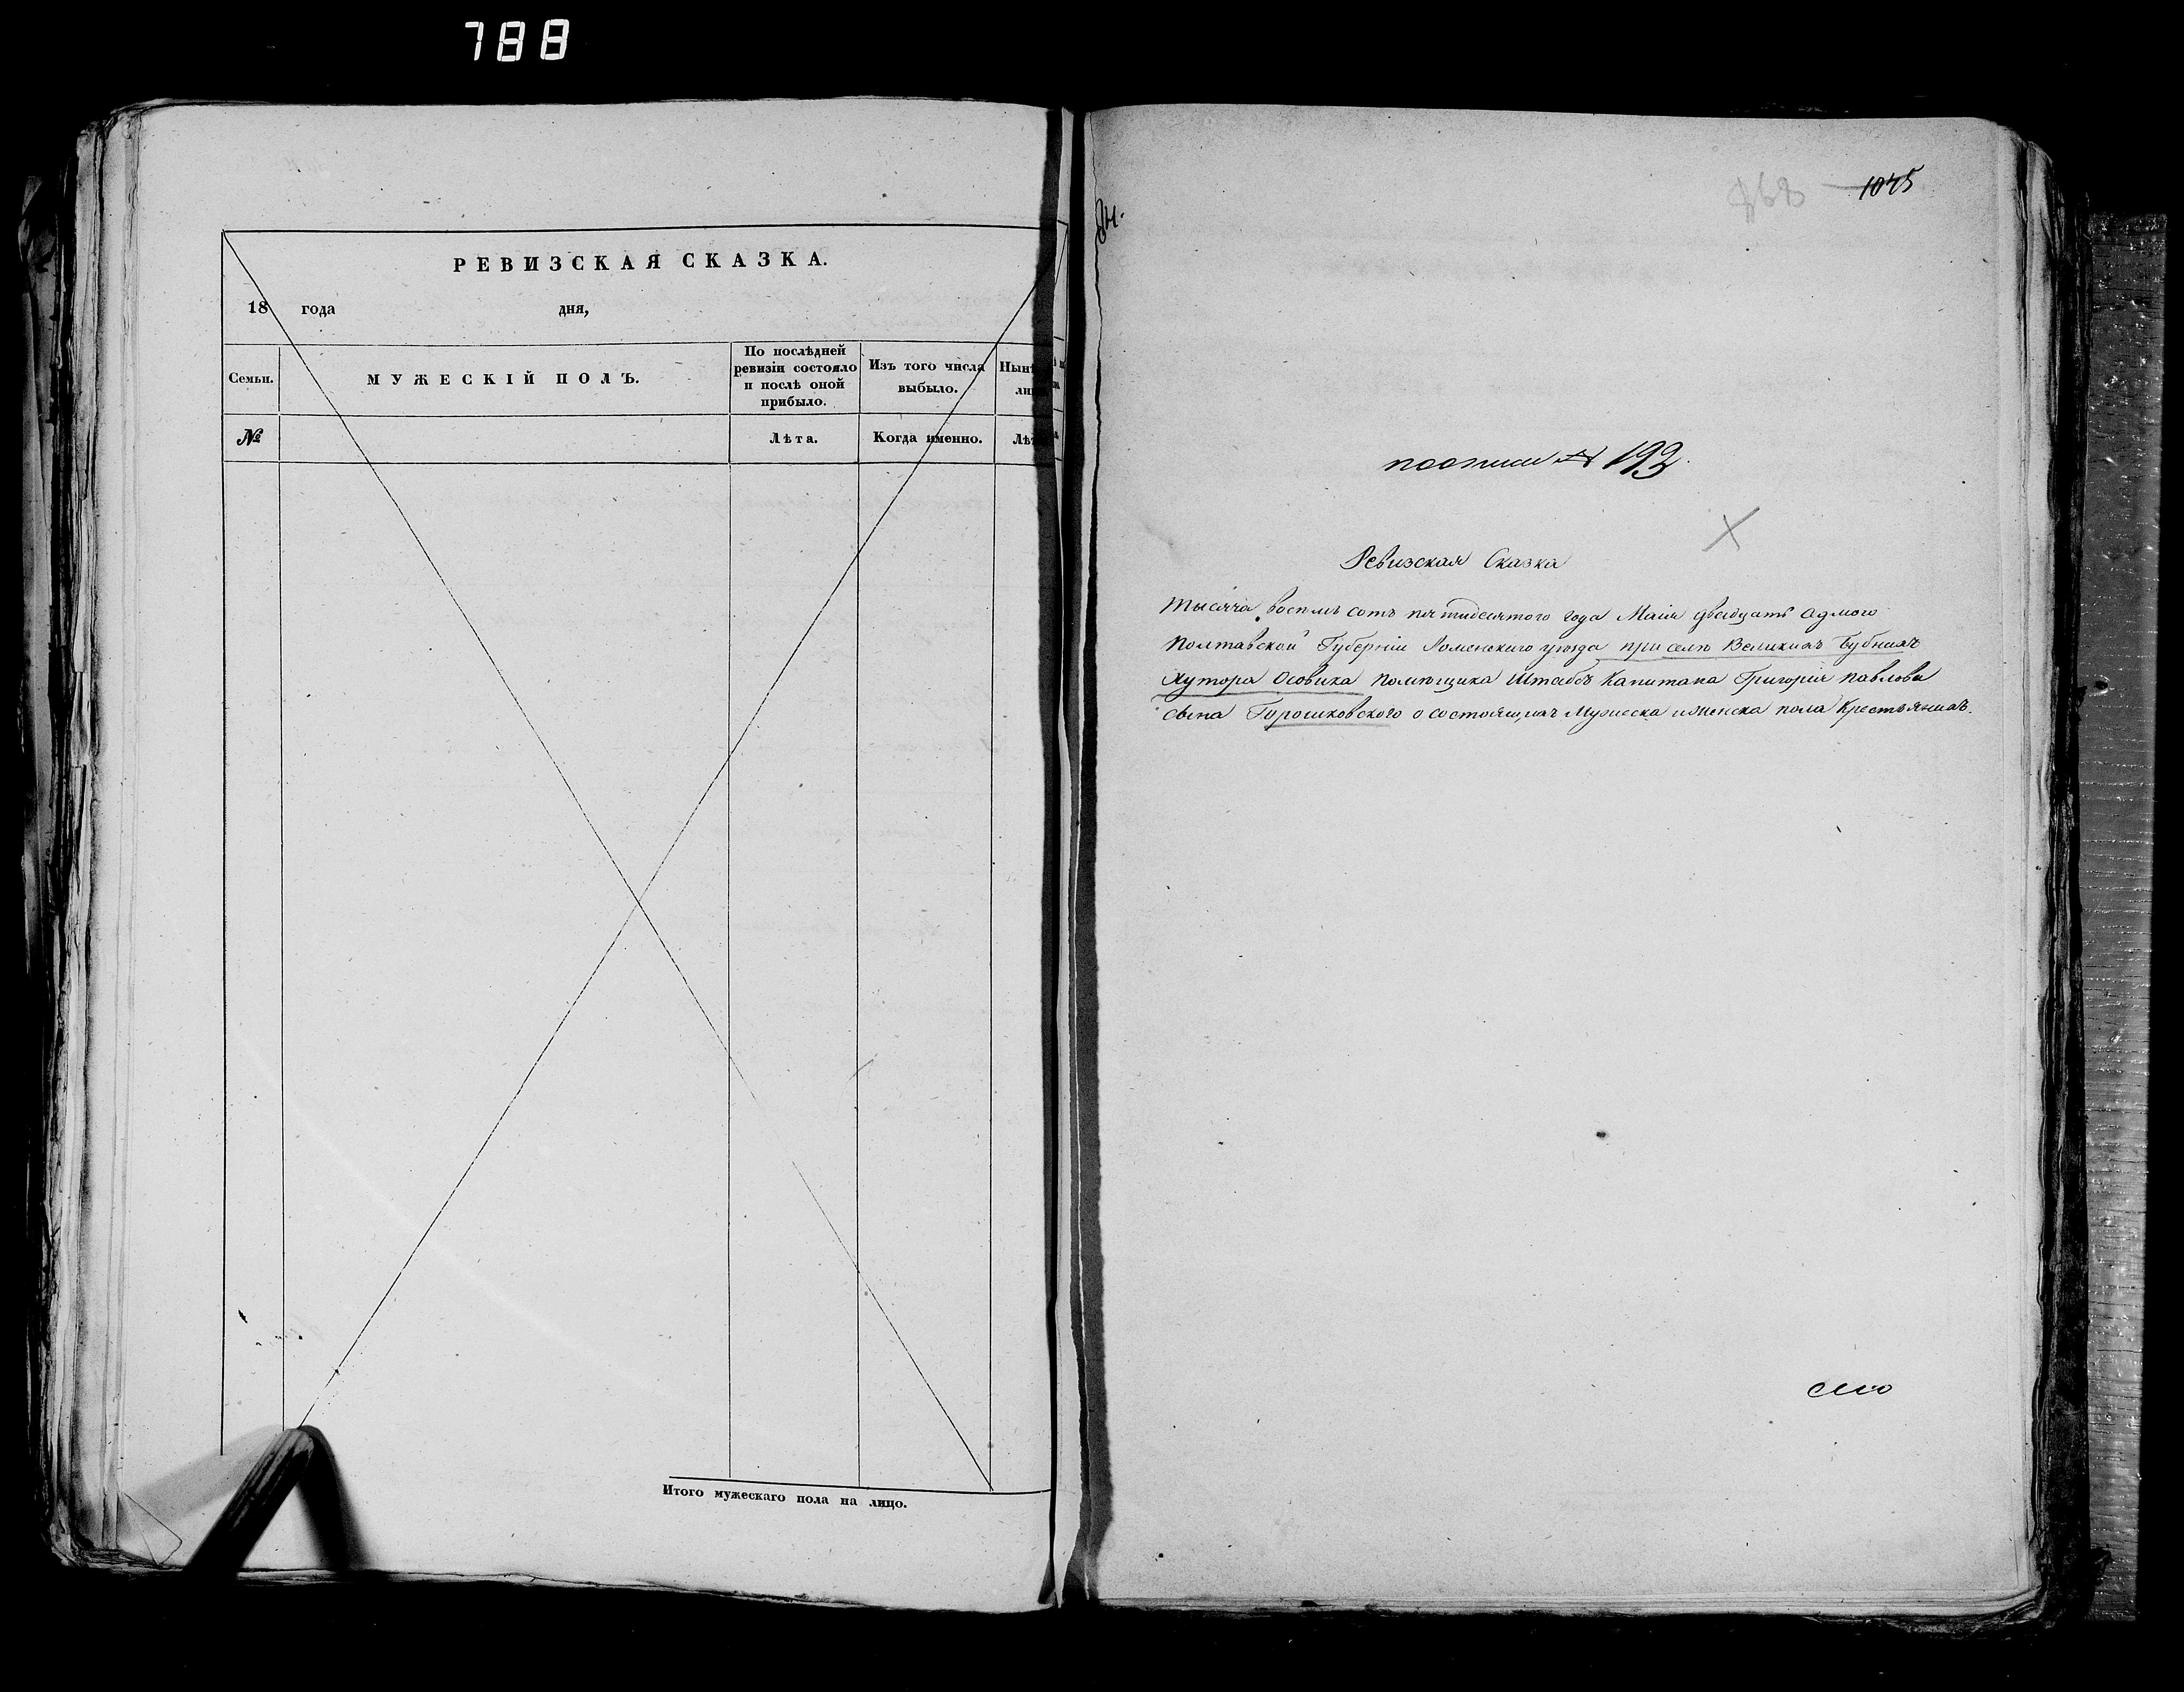 788
РЕВИЗСКАЯ СКАЗКА.
18 года дня,
Семьи.
МУЖЕСКІЙ ПОЛЪ.
По послѣдней
ревизіи состояло
и послѣ оной
прибыло.
Изъ того числа
выбыло.
№
Лѣта.
Когда именно.
Итого мужескаго пола на лицо.
868 1045
по описи № 192.
Ревизская Сказка
Тысяча восемь сотъ пятидесятого года Маія двадцать седмого
Полтавской Губерніи Роменского уезда при селѣ Великихъ Бубнахъ
Хутора Осовика помѣщика Штабсъ Капитана Григорія Павлова
сына Горошковского о состоящихъ Мужеска и Женска пола Крестьянахъ.